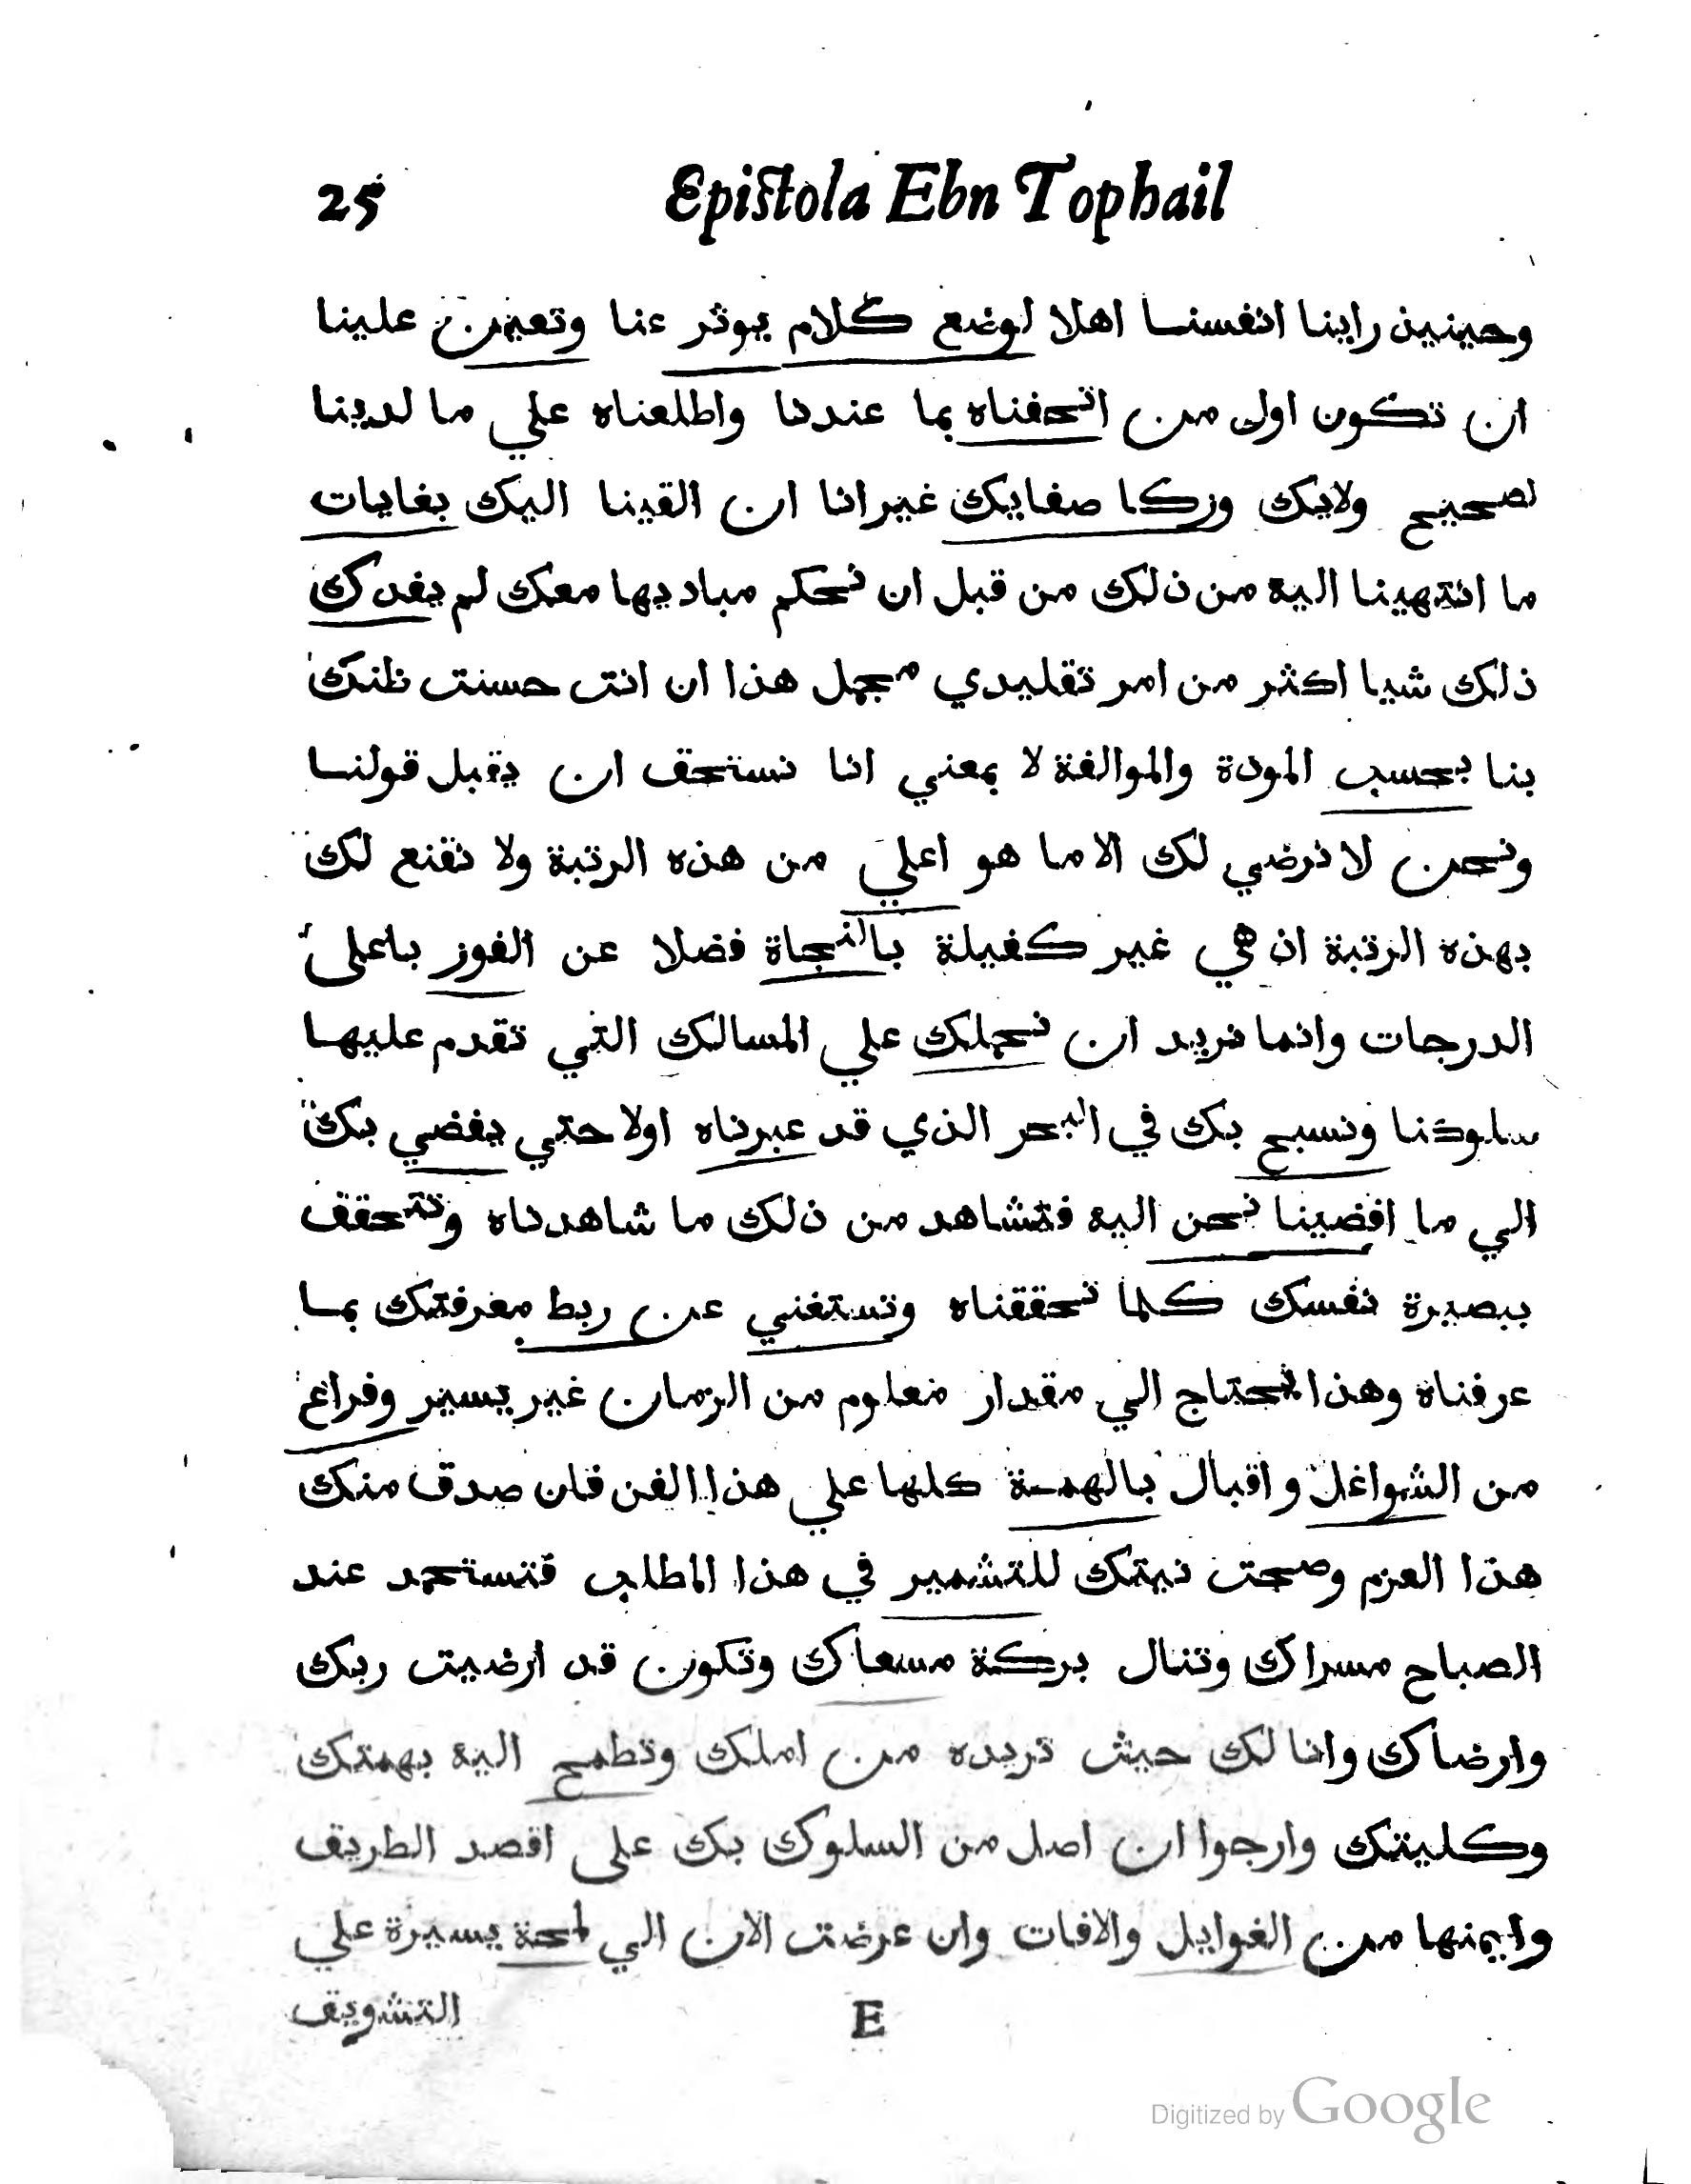 25 Epistola Ebn Tophail
وحينين راينا انفسنا اهلا لوضع كلام يوثر عنا وتعين علينا
ان تكون اول من اتحفناه بما عندنا واطلعناه علي ما لدينا
لصحيح ولايك وزكا صفايك غير انا ان القينا اليك بغايات
ما انتهينا اليه من ذلك من قبل ان نحكم مباديها معك لم يفدك
ذلك شيا اكثر من امر تقليدي مجمل هذا ان انت حسنت ظنك
بنا بحسب المودة والموالفة لا بمعني انا نستحق ان يقبل قولنا
ونحن لا نرضي لك الا ما هو اعلي من هذه الرتبة ولا نقنع لك
بهذه الرتبة اذ هي غير كفيلة بالنجاة فضلا عن الفوز باعلى
الدرجات وانما نريد ان نحملك علي المسالك التي تقدم عليها
سلوكنا ونسبح بك في البحر الذي قد عبرناه اولا حتي يفضي بك
الي ما افضينا نحن اليه فتشاهد من ذلك ما شاهدناه وتتحقق
ببصيرة نفسك كلما تحققناه وتستغني عن ربط معرفتك بما
عرفناه وهذا يحتاج الي مقدار معلوم من الزمان غير يسير وفراغ
من الشواغل واقبال بالهمة كلها علي هذا الفن فان صدق منك
هذا العزم وصحت نيتك للتشمير في هذا المطلب فتستحمد عند
الصباح مسراك وتنال بركة مسعاك وتكون قد ارضيت ربك
وارضاك وانا لك حيث تريده من املك وتطمح اليه بهمتك
وكليتك وارجوا ان اصل من السلوك بك على اقصد الطريق
وايمنها من الغوايل والافات وان عرضت الان الي لمحة يسيرة علي
E التشويق
Digitized by Google